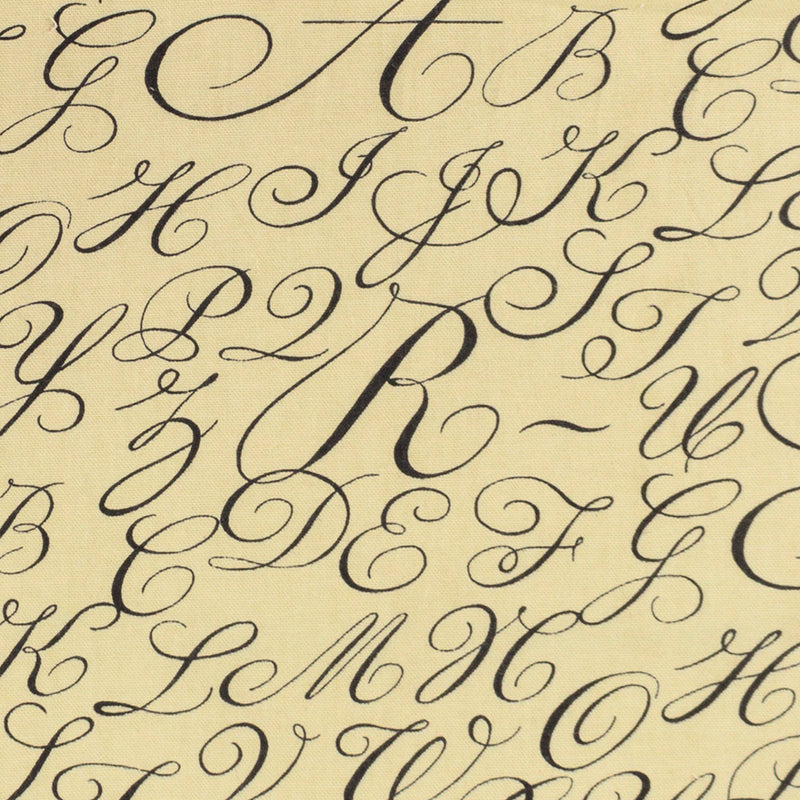 G A B C
H I J K L
Y P Q R S T
Z ~ U
B C D E F G
K L M X O H
S T V W